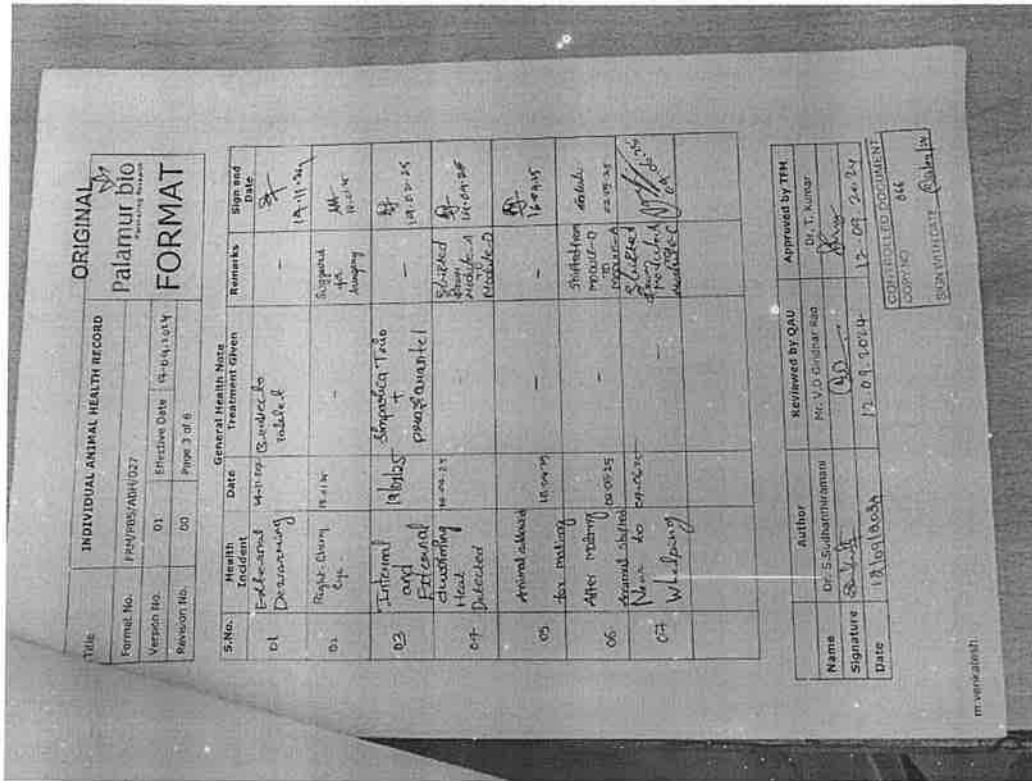 ORIGINAL
Title
INDIVIDUAL ANIMAL HEALTH RECORD
Palamur bio
Format No.
FRM/PBS/ADH/027
FORMAT
Version No.
01
Effective Date
Revision No.
00
Page 3 of 6
General Health Note
S.No.
Health Incident
Date
Treatment Given
Remarks
Sign and Date
01
Deworming
-
19.11.24
02
Right Cherry eye
-
03
Internal and External deworming
19/02/25
Simparica Trio + praziquantel
-
19.02.25
04
Heat Detected
-
Shifted from Module-A to Module-D
05
Animal allowed for mating
-
-
06
After mating Animal shifted
02.05.25
-
Shifted from module-D to module-A
02.05.25
07
Near to Whelping
-
Shifted from
Author
Reviewed by QAU
Approved by TFM
Name
Dr. S.Sudhanthiramani
Mr. V.D Giridhar Rao
Dr. T. Kumar
Signature
Date
12/09/2024
12.09.2024
12.09.2024
CONTROLLED DOCUMENT
COPY NO
066
SIGN WITH DATE
m.venkatesh